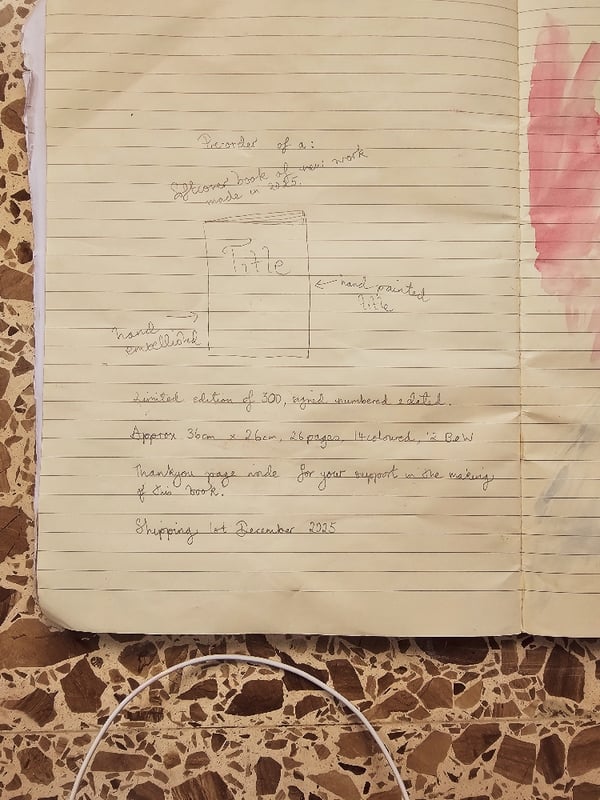 Pre-order of a:
Softcover book of new work
made in 2025.
Title
hand painted
title
hand
embellished
Limited edition of 300, signed numbered & dated.
Approx 36cm x 26cm, 26 pages, 14 coloured, 12 B&W
Thankyou page inside for your support in the making
of this book.
Shipping 1st December 2025